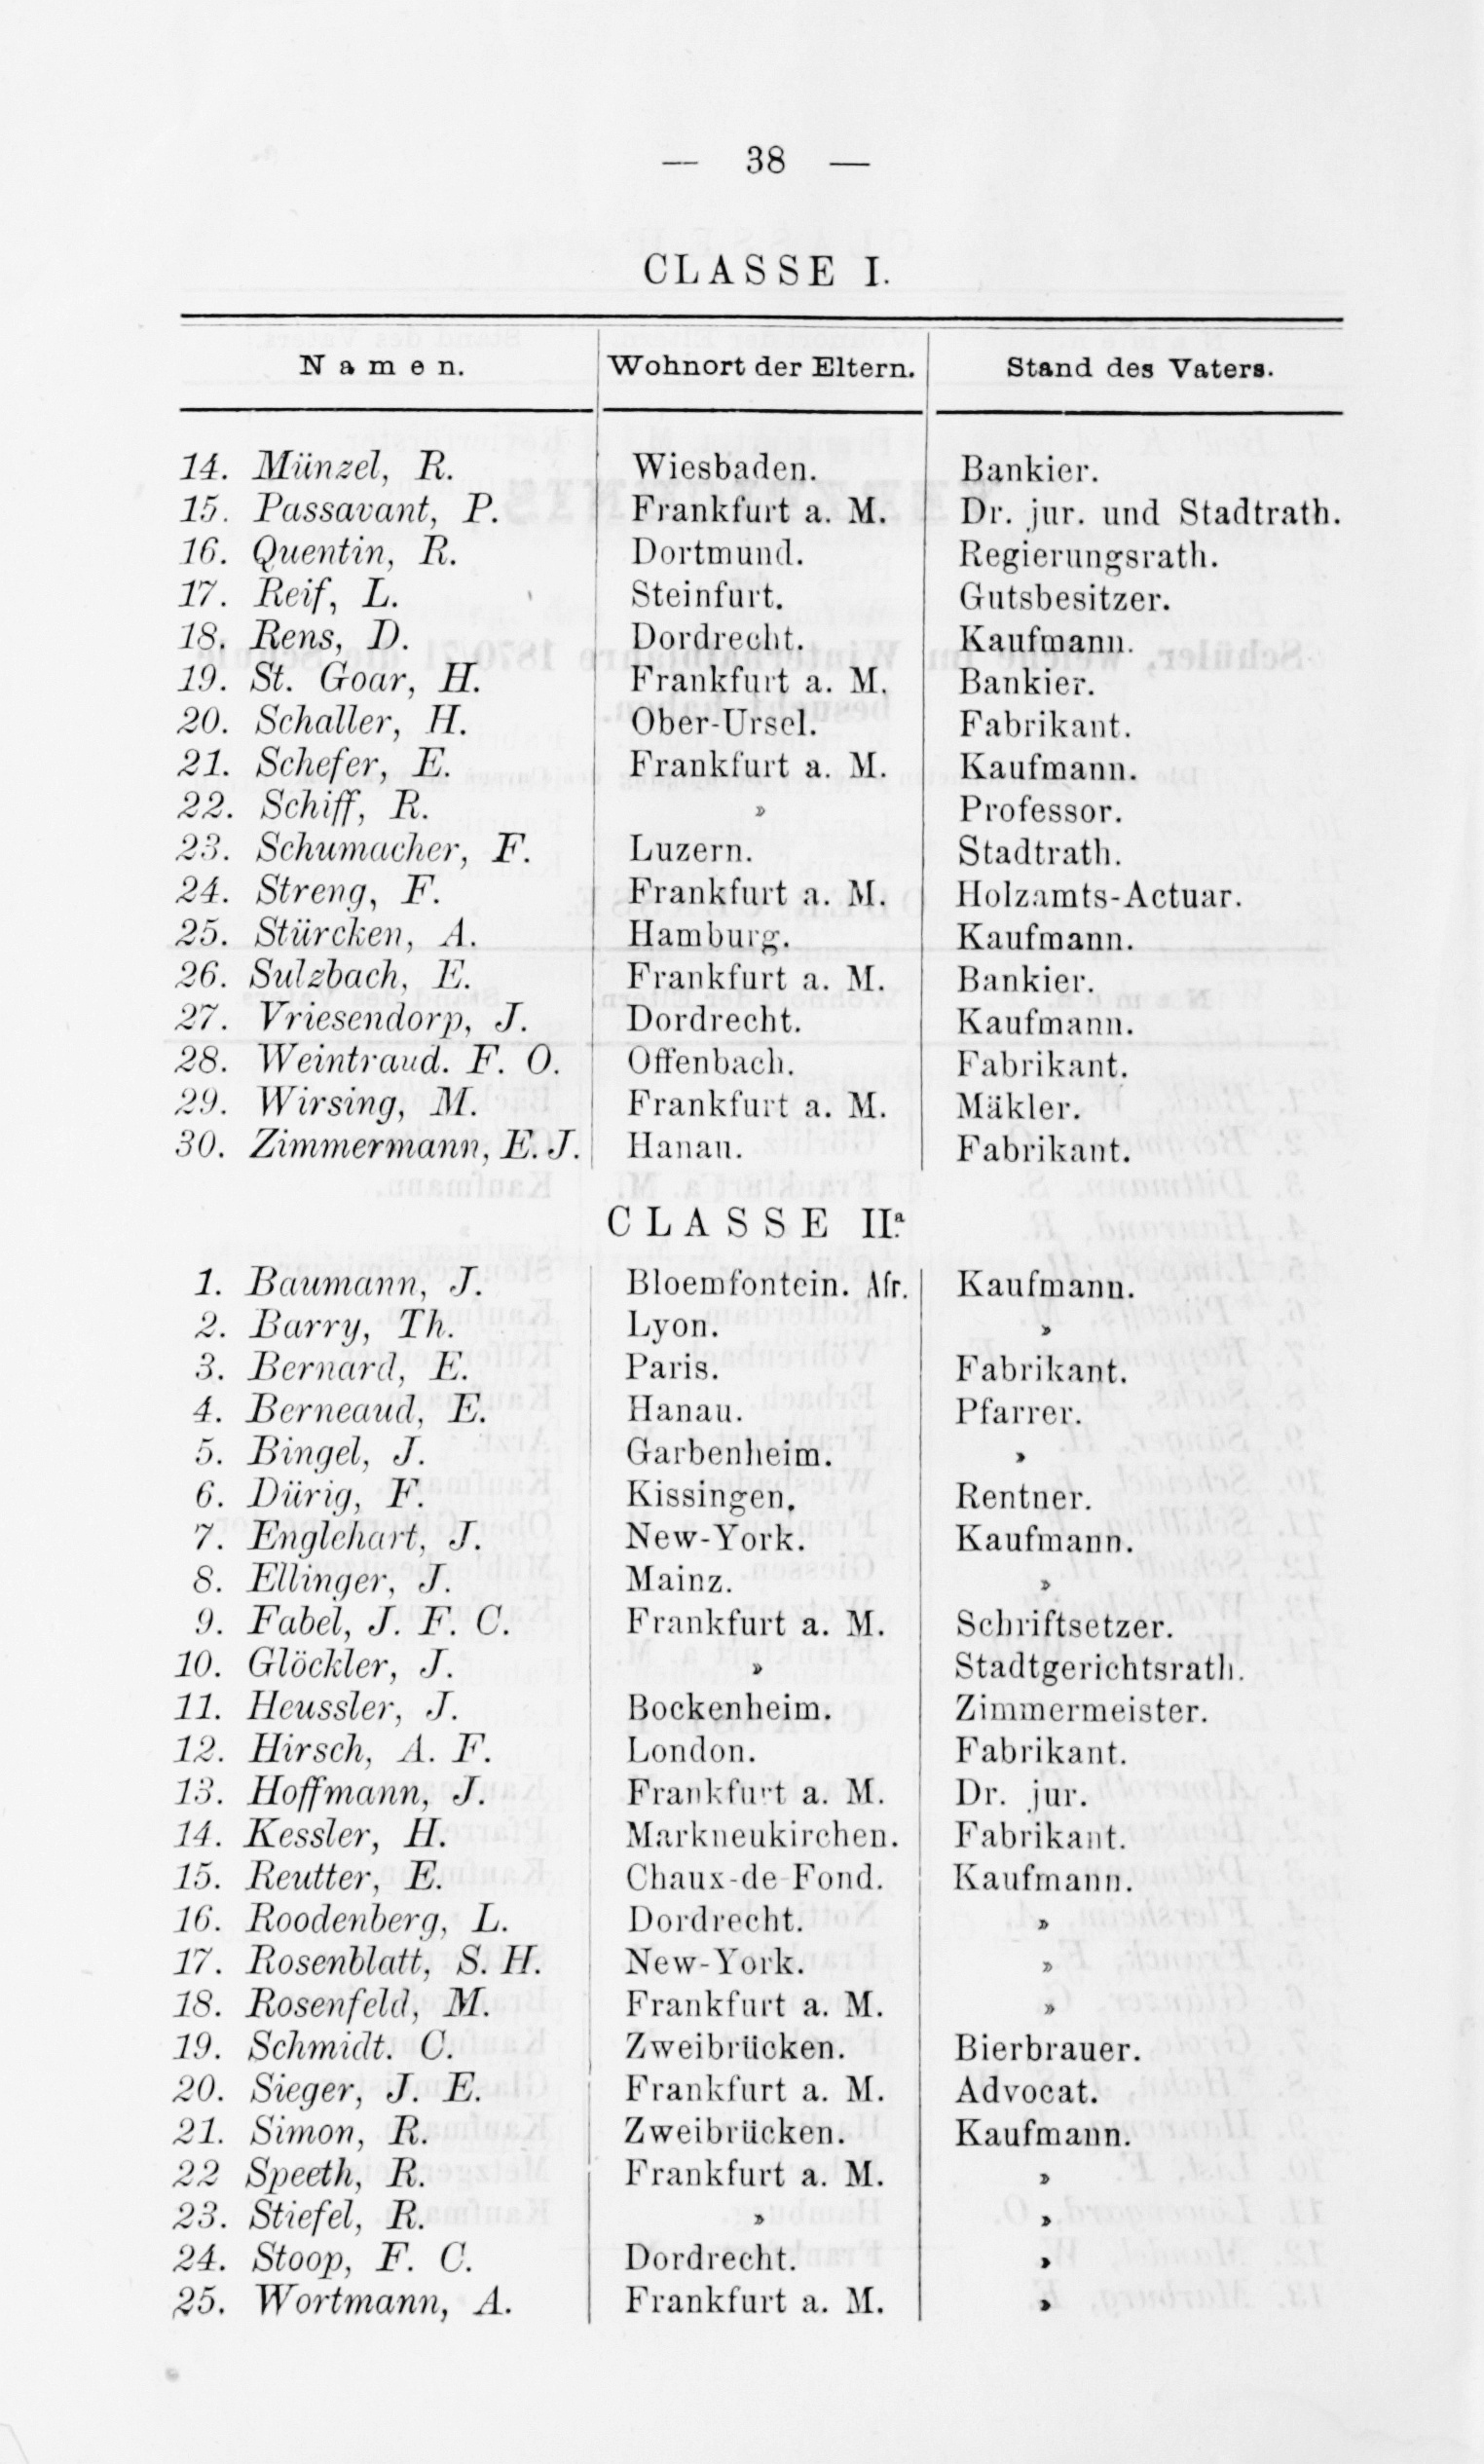 — 38 —
CLASSE I.
Namen. Wohnort der Eltern. Stand des Vaters.
14. Münzel, R. Wiesbaden. Bankier.
15. Passavant, P. Frankfurt a. M. Dr. jur. und Stadtrath.
16. Quentin, R. Dortmund. Regierungsrath.
17. Reif, L. Steinfurt. Gutsbesitzer.
18. Rens, D. Dordrecht. Kaufmann.
19. St. Goar, H. Frankfurt a. M. Bankier.
20. Schaller, H. Ober-Ursel. Fabrikant.
21. Schefer, E. Frankfurt a. M. Kaufmann.
22. Schiff, R. » Professor.
23. Schumacher, F. Luzern. Stadtrath.
24. Streng, F. Frankfurt a. M. Holzamts-Actuar.
25. Stürcken, A. Hamburg. Kaufmann.
26. Sulzbach, E. Frankfurt a. M. Bankier.
27. Vriesendorp, J. Dordrecht. Kaufmann.
28. Weintraud. F. O. Offenbach. Fabrikant.
29. Wirsing, M. Frankfurt a. M. Mäkler.
30. Zimmermann, E. J. Hanau. Fabrikant.
CLASSE IIa.
1. Baumann, J. Bloemfontein. Afr. Kaufmann.
2. Barry, Th. Lyon. »
3. Bernard, E. Paris. Fabrikant.
4. Berneaud, E. Hanau. Pfarrer.
5. Bingel, J. Garbenheim. »
6. Dürig, F. Kissingen. Rentner.
7. Englehart, J. New-York. Kaufmann.
8. Ellinger, J. Mainz. »
9. Fabel, J. F. C. Frankfurt a. M. Schriftsetzer.
10. Glöckler, J. » Stadtgerichtsrath.
11. Heussler, J. Bockenheim. Zimmermeister.
12. Hirsch, A. F. London. Fabrikant.
13. Hoffmann, J. Frankfurt a. M. Dr. jur.
14. Kessler, H. Markneukirchen. Fabrikant.
15. Reutter, E. Chaux-de-Fond. Kaufmann.
16. Roodenberg, L. Dordrecht. »
17. Rosenblatt, S. H. New-York. »
18. Rosenfeld, M. Frankfurt a. M. »
19. Schmidt. C. Zweibrücken. Bierbrauer.
20. Sieger, J. E. Frankfurt a. M. Advocat.
21. Simon, R. Zweibrücken. Kaufmann.
22 Speeth, R. Frankfurt a. M. »
23. Stiefel, R. » »
24. Stoop, F. C. Dordrecht. »
25. Wortmann, A. Frankfurt a. M. »